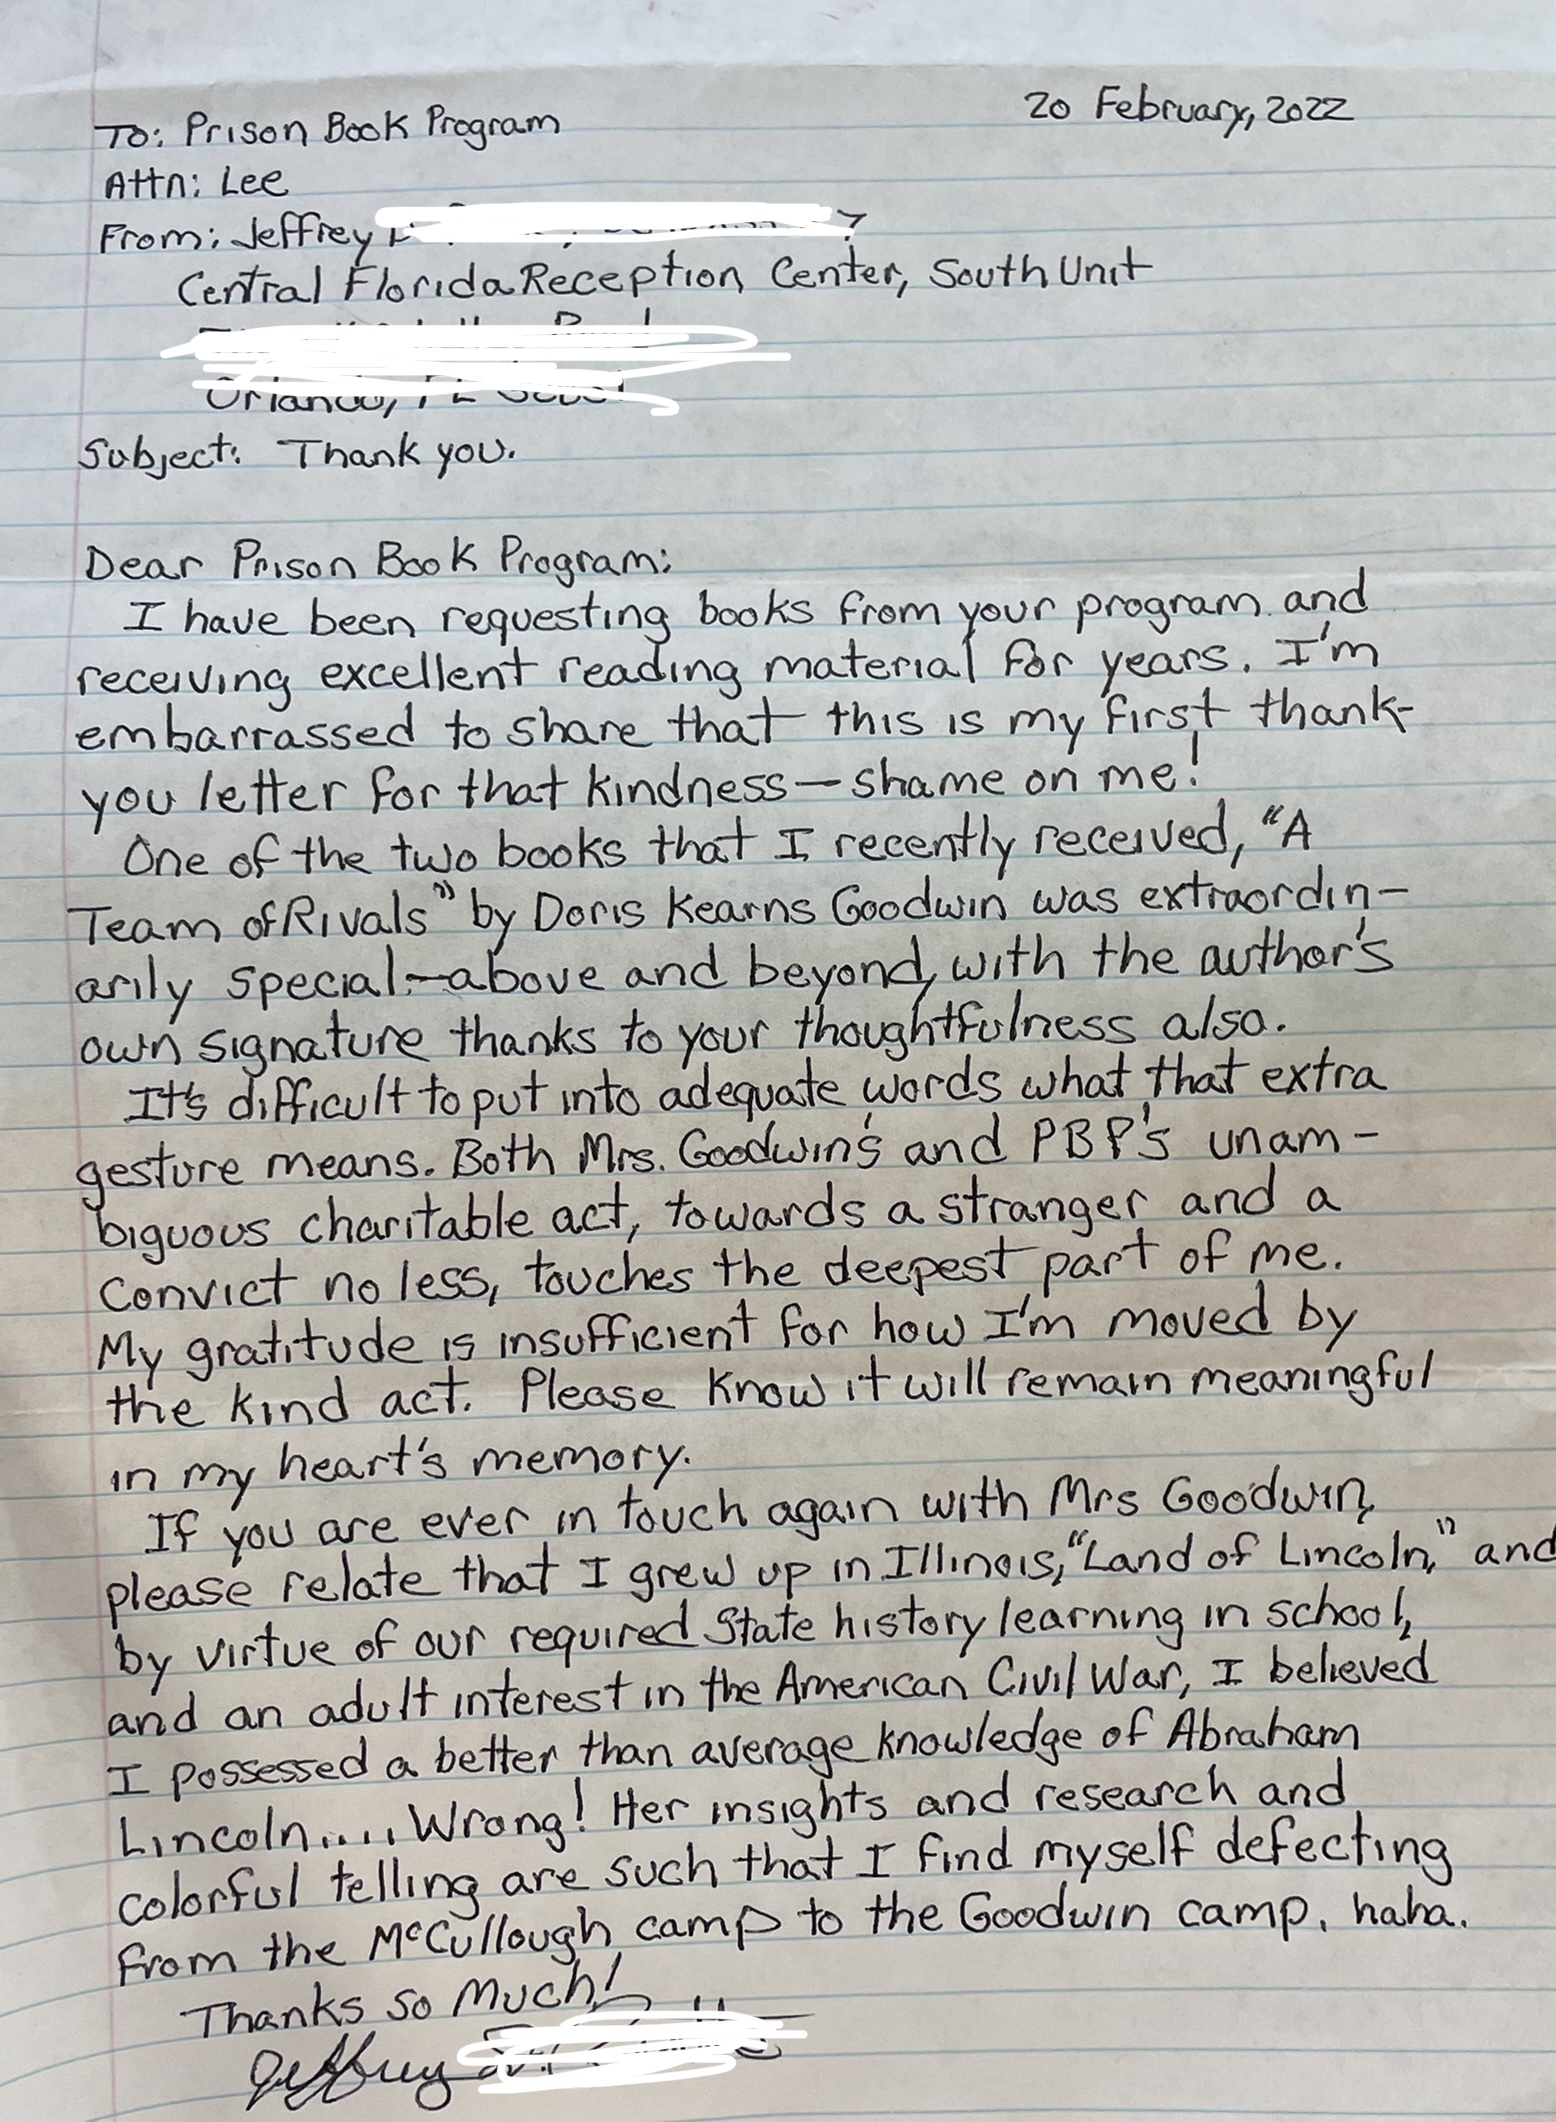 20 February, 2022
To: Prison Book Program
Attn: Lee
From: Jeffrey
Central Florida Reception Center, South Unit
Orlando, FL
Subject: Thank you.
Dear Prison Book Program:
I have been requesting books from your program and
receiving excellent reading material for years. I'm
embarrassed to share that this is my first thank-
you letter for that kindness—shame on me!
One of the two books that I recently received, "A
Team of Rivals" by Doris Kearns Goodwin was extraordin-
arily special—above and beyond, with the author's
own signature thanks to your thoughtfulness also.
It's difficult to put into adequate words what that extra
gesture means. Both Mrs. Goodwin's and PBP's unam-
biguous charitable act, towards a stranger and a
convict no less, touches the deepest part of me.
My gratitude is insufficient for how I'm moved by
the kind act. Please know it will remain meaningful
in my heart's memory.
If you are ever in touch again with Mrs Goodwin,
please relate that I grew up in Illinois, "Land of Lincoln," and
by virtue of our required State history learning in school,
and an adult interest in the American Civil War, I believed
I possessed a better than average knowledge of Abraham
Lincoln.... Wrong! Her insights and research and
colorful telling are such that I find myself defecting
from the McCullough camp to the Goodwin camp, haha.
Thanks so Much!
Jeffrey